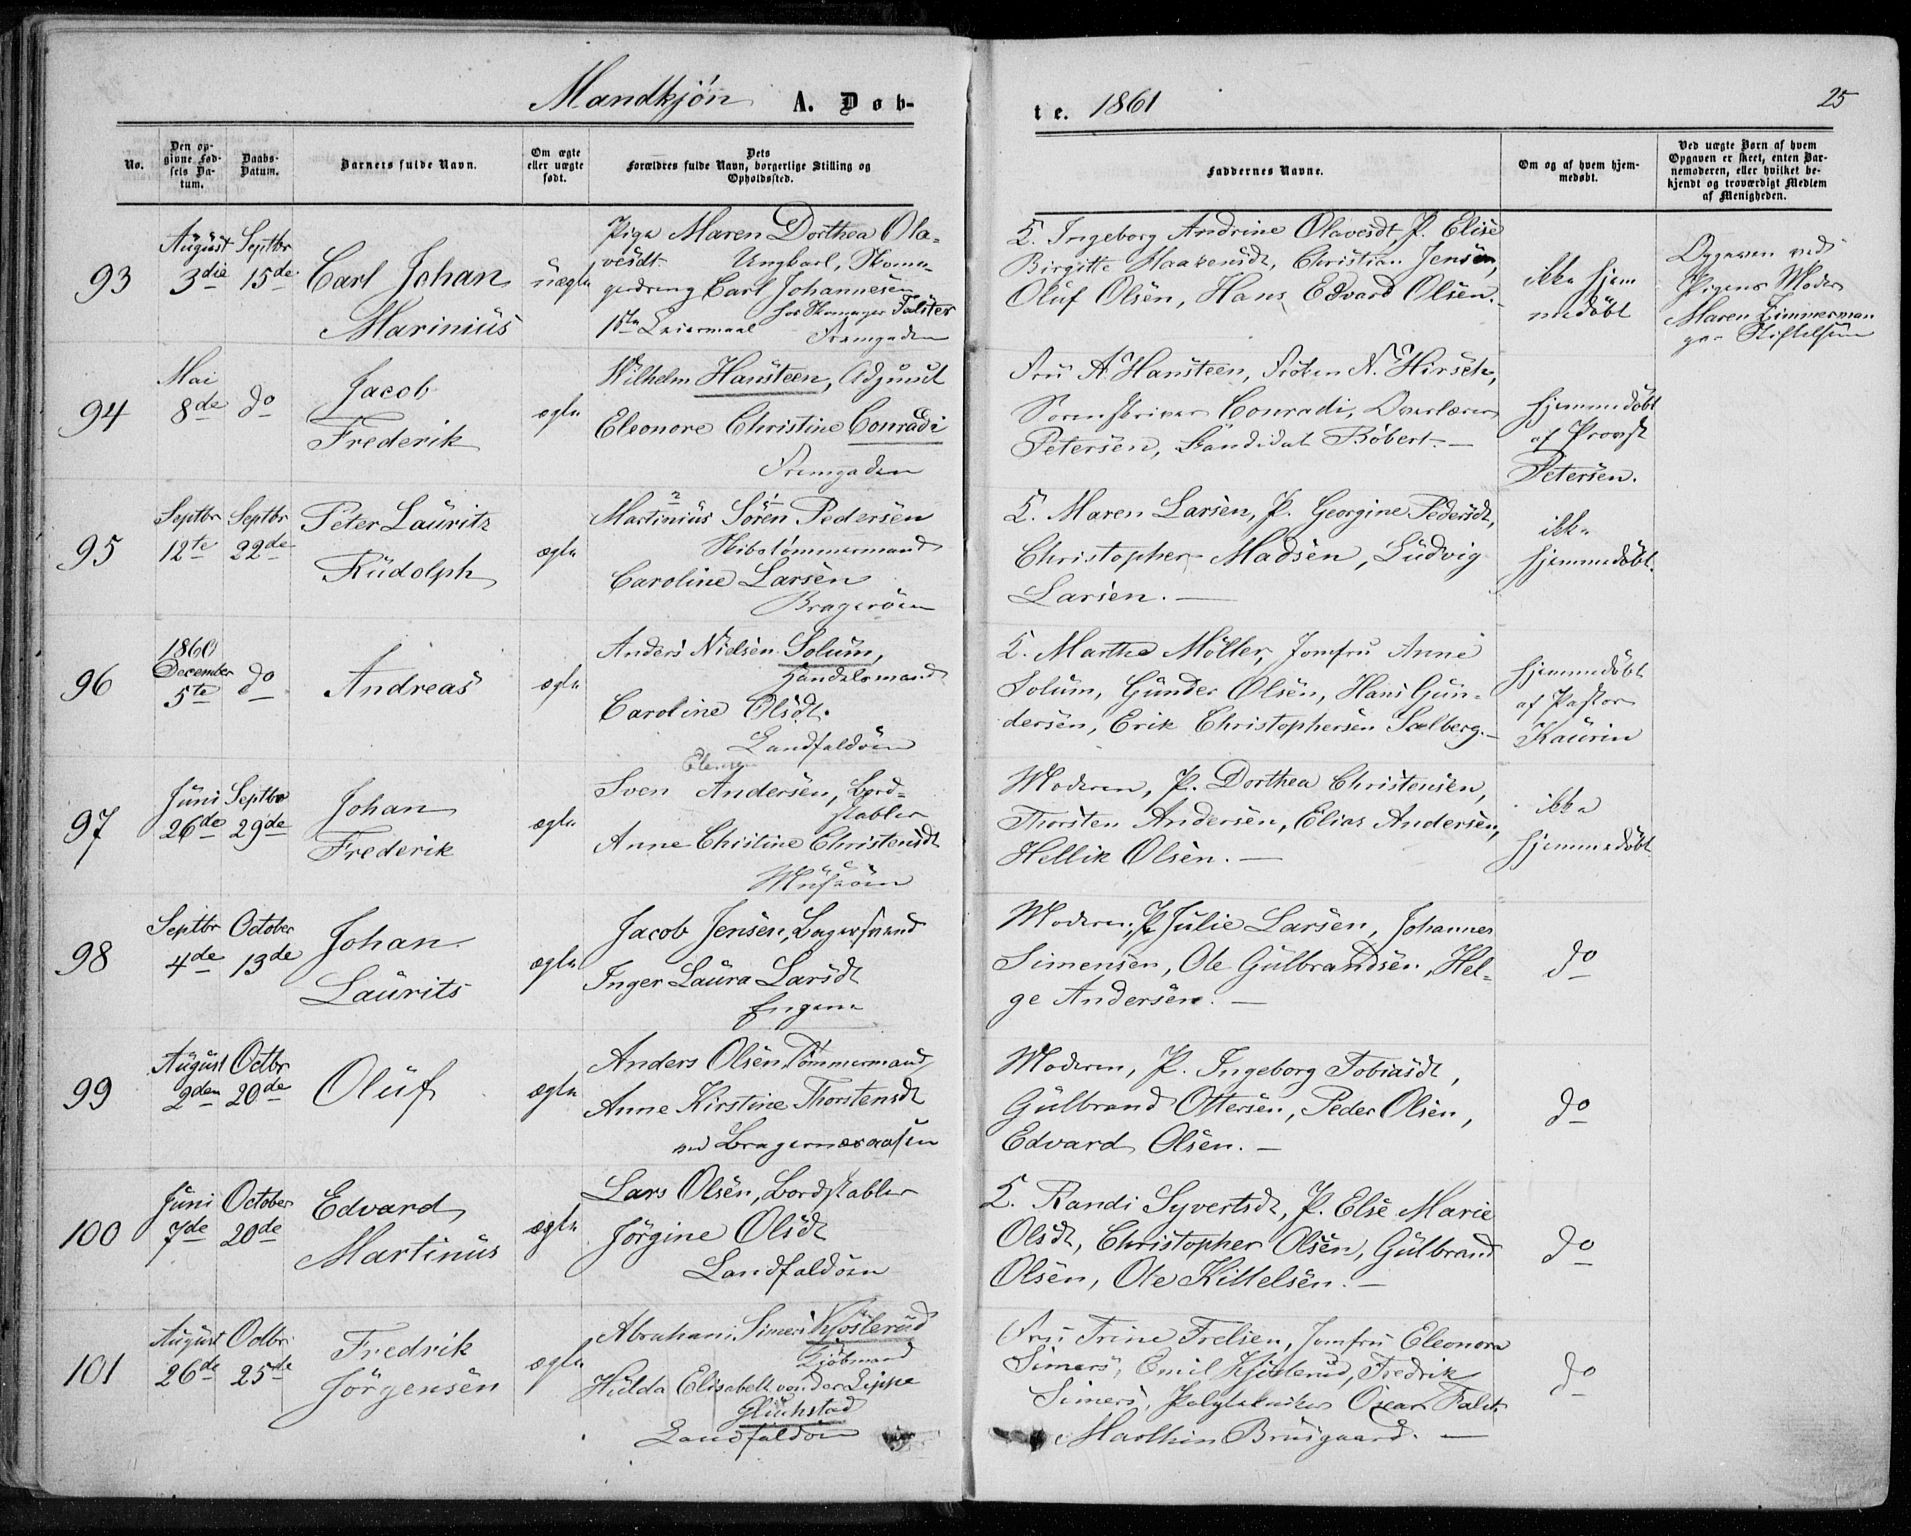 Mandkjön A. Døb-
te. 1861
25
No.
Den op-
givne Fød-
sels Da-
tum.
Daabs-
Datum.
Barnets fulde Navn.
Om ægte
eller uægte
født.
Dets
Forældres fulde Navn, borgerlige Stilling og
Opholdssted.
Faddernes Navne.
Om og af hvem hjem-
medøbt.
Ved uægte Børn af hvem
Opgaven er skeet, enten Bar-
nemoderen, eller hvilket be-
kjendt og troværdigt Medlem
af Menigheden.
93
August
3die
Septbr
15de
Carl Johan
Marinius
uægte
Pige Maren Dorthea Ola-
vesdt. Ungkarl, Skoma-
gerdreng Carl Johannesen
hos Skomager Falster
1ste Leiermaal
Strømgaden
K. Ingeborg Andrine Olavesdt, P. Elise
Birgitte Haakensdt, Christian Jensen,
Oluf Olsen, Hans Edvard Olsen.
ikke hjem
medöbt
Opgaven ved
Pigens Moder
Maren Zimmerman
Stiftelsen
94
Mai
8de
do
Jacob
Frederik
ægte
Wilhelm Hansteen, Adjunct
Eleonore Christine Conradi
Strømgaden
Fru A. Hansteen, Frøken N. Hirsch,
Sorenskriver Conradi, Overlærer
Petersen, Kandidat Röbert. —
hjemmedöbt
af Provst
Petersen.
95
Septbr
12te
Septbr
22de
Peter Lauritz
Rudolph
ægte
Martinius Sören Pedersen
Skibstömmermand
Caroline Larsen
Bragerøen
K. Maren Larsen, P. Georgine Pedersdt,
Christopher Madsen, Ludvig
Larsen. —
ikke
hjemmedöbt.
96
1860
December
5te
do
Andreas
ægte
Anders Nielsen Solum,
Handelsmand
Caroline Olsdt.
Landfaldöen
K. Marthe Möller, Jomfru Anne
Solum, Gunder Olsen, Hans Gun-
dersen, Erik Christophersen Sælberg. —
hjemmedöbt
af Pastor
Kaurin
97
Juni
26de
Septbr
29de
Johan
Frederik
ægte
Sven Andersen, Bord-
stabler
Anne Chistine Christensdt
Musøen
Moderen, P. Dorthea Christensen,
Thorsten Andersen, Elias Andersen,
Hellik Olsen. —
ikke
hjemmedöbt
98
Septbr
4de
October
13de
Johan
Laurits
ægte
Jacob Jensen, Bagersvend
Inger Laura Larsdt
Engene
Moderen, P. Julie Larsen, Johannes
Simensen, Ole Gulbrandsen, Hel-
ge Andersen. —
do
99
August
2den
Octbr
20de
Oluf
ægte
Anders Olsen Tömmermand
Anne Kirstine Thorstensdt
ved Bragernæsaasen
Moderen, P. Ingeborg Tobiasdt,
Gulbrand Ottersen, Peder Olsen,
Edvard Olsen. —
do
100
Juni
7de
October
20de
Edvard
Martinus
ægte
Lars Olsen, Bordstabler
Jörgine Olsdt
Landfaldöen
K. Randi Syvertsdt, P. Else Marie
Olsdt, Christopher Olsen, Gulbrand
Olsen, Ole Kittelsen. —
do
101
August
26de
Octbr
25de
Fredrik
Jörgensen
ægte
Abraham Simers Kjösterud
Kjöbmand
Hulda Elisabeth van der Lippe
Gluckstad
Landfaldöen
Fru Trine Frelsen, Jomfru Eleonora
Simers, Emil Kjösterud, Fredrik
Simers, Polytekniker Oscar Falck
Marthin Brusgaard. —
do